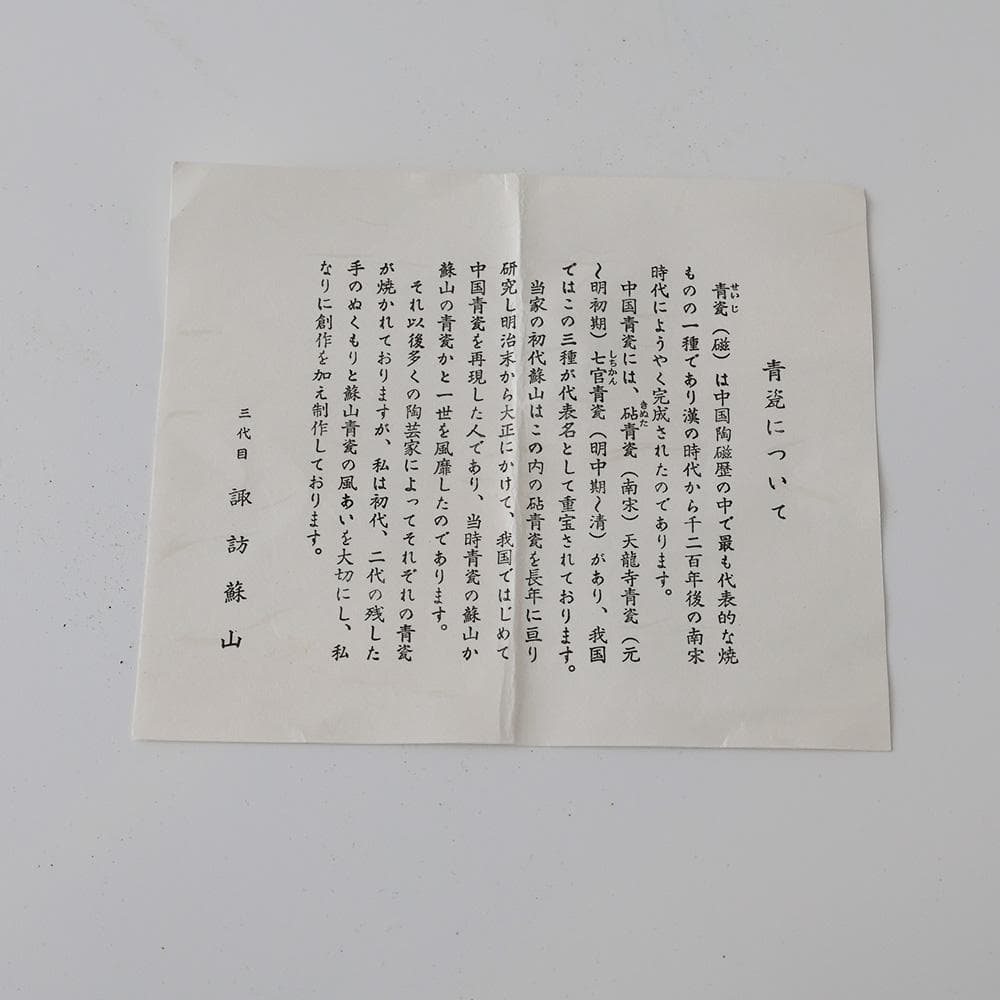 青瓷について
青瓷（磁）は中国陶磁歴の中で最も代表的な焼
せいじ
ものの一種であり漢の時代から千二百年後の南宋
時代にようやく完成されたのであります。
中国青瓷には、砧青瓷（南宋）天龍寺青瓷（元
きぬた
〜明初期）七官青瓷（明中期〜清）があり、我国
しちかん
ではこの三種が代表名として重宝されております。
当家の初代蘇山はこの内の砧青瓷を長年に亘り
研究し明治末から大正にかけて、我国ではじめて
中国青瓷を再現した人であり、当時青瓷の蘇山か
蘇山の青瓷かと一世を風靡したのであります。
それ以後多くの陶芸家によってそれぞれの青瓷
が焼かれておりますが、私は初代、二代の残した
手のぬくもりと蘇山青瓷の風あいを大切にし、私
なりに創作を加え制作しております。
三代目 諏訪蘇山